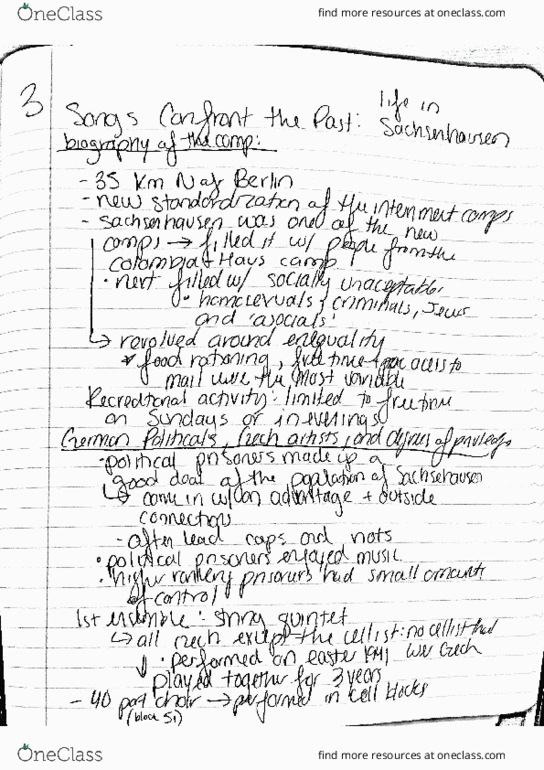 OneClass
find more resources at oneclass.com
3
Songs Confront the Past: life in Sachsenhausen
biography of the camp:
- 35 km N of Berlin
- new standardization of the internment camps
- sachsenhausen was one of the new
camps → filled it w/ people from the
columbia Haus camp
• next filled w/ socially unacceptable
• homosexuals, criminals, Jews
and 'asocials'
↳ revolved around inequality
food rationing, free time + access to
mail were the most variable
Recreational activity: limited to free time
on Sundays or in evenings
German Politicals, Czech artists, and degrees of privilege
• political prisoners made up a
good deal of the population of Sachsenhausen
↳ came in w/ an advantage + outside
connections
- often lead caps and
• political prisoners enjoyed music
• higher ranking prisoners had small amounts
of control
1st ensemble: string quintet
↳ all czech except the cellist: no cellist that
• performed on easter 1941 were Czech
↓ played together for 3 years
- 40 part choir → performed in cell blocks
(block 51)
OneClass
find more resources at oneclass.com